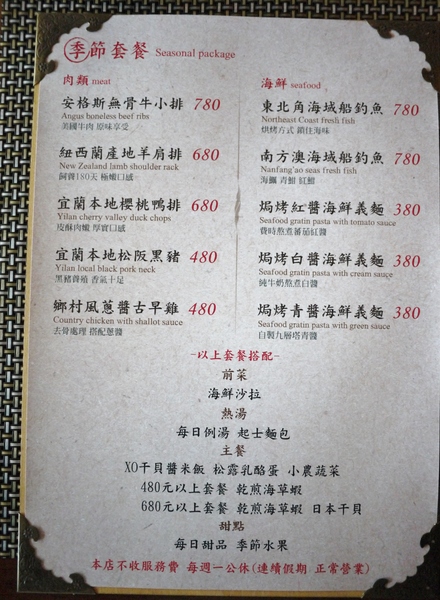 季節套餐 Seasonal package
肉類 meat
安格斯無骨牛小排 780
Angus boneless beef ribs
美國牛肉 原味享受
紐西蘭產地羊肩排 680
New Zealand lamb shoulder rack
飼養180天 極嫩口感
宜蘭本地櫻桃鴨排 680
Yilan cherry valley duck chops
皮酥肉嫩 厚實口感
宜蘭本地松阪黑豬 480
Yilan local black pork neck
黑豬飼殖 香氣十足
鄉村風蔥醬古早雞 480
Country chicken with shallot sauce
去骨處理 搭配蔥醬
海鮮 seafood
東北角海域船釣魚 780
Northeast Coast fresh fish
烘烤方式 鎖住海味
南方澳海域船釣魚 780
Nanfang'ao seas fresh fish
海鱺 青魽 紅魽
焗烤紅醬海鮮義麵 380
Seafood gratin pasta with tomato sauce
費時熬煮蕃茄紅醬
焗烤白醬海鮮義麵 380
Seafood gratin pasta with cream sauce
純牛奶熬煮白醬
焗烤青醬海鮮義麵 380
Seafood gratin pasta with green sauce
自製九層塔青醬
-以上套餐搭配-
前菜
海鮮沙拉
熱湯
每日例湯 起士麵包
主餐
XO干貝醬米飯 松露乳酪蛋 小農蔬菜
480元以上套餐 乾煎海草蝦
680元以上套餐 乾煎海草蝦 日本干貝
甜點
每日甜品 季節水果
本店不收服務費 每週一公休(連續假期 正常營業)